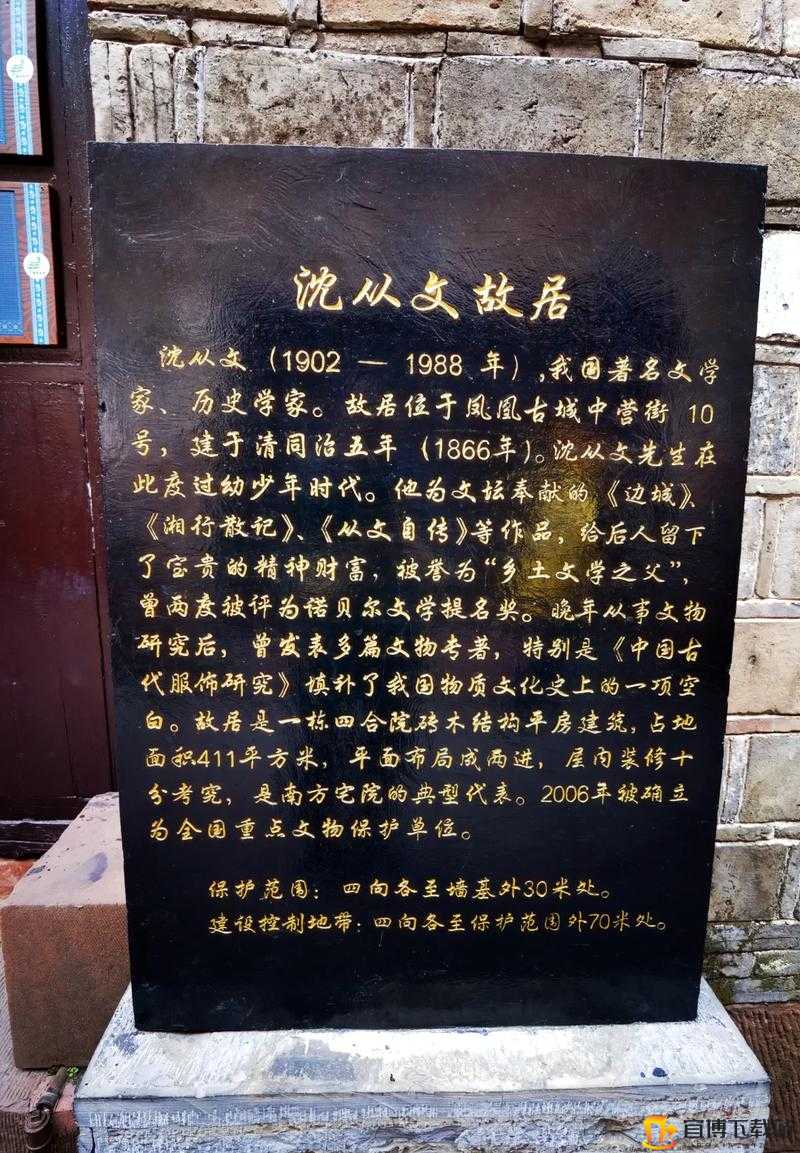 沈从文故居
沈从文（1902 — 1988 年）,我国著名文学
家、历史学家。故居位于凤凰古城中营街 10
号，建于清同治五年（1866年）。沈从文先生在
此度过幼少年时代。他为文坛奉献的《边城》、
《湘行散记》、《从文自传》等作品，给后人留下
了宝贵的精神财富，被誉为“乡土文学之父”，
曾两度被评为诺贝尔文学提名奖。晚年从事文物
研究后，曾发表多篇文物专著，特别是《中国古
代服饰研究》填补了我国物质文化史上的一项空
白。故居是一栋四合院砖木结构平房建筑，占地
面积411平方米，平面布局成两进，屋内装修十
分考究，是南方宅院的典型代表。2006年被确立
为全国重点文物保护单位。
保护范围：四向各至墙基外30米处。
建设控制地带：四向各至保护范围外70米处。
宜博下载